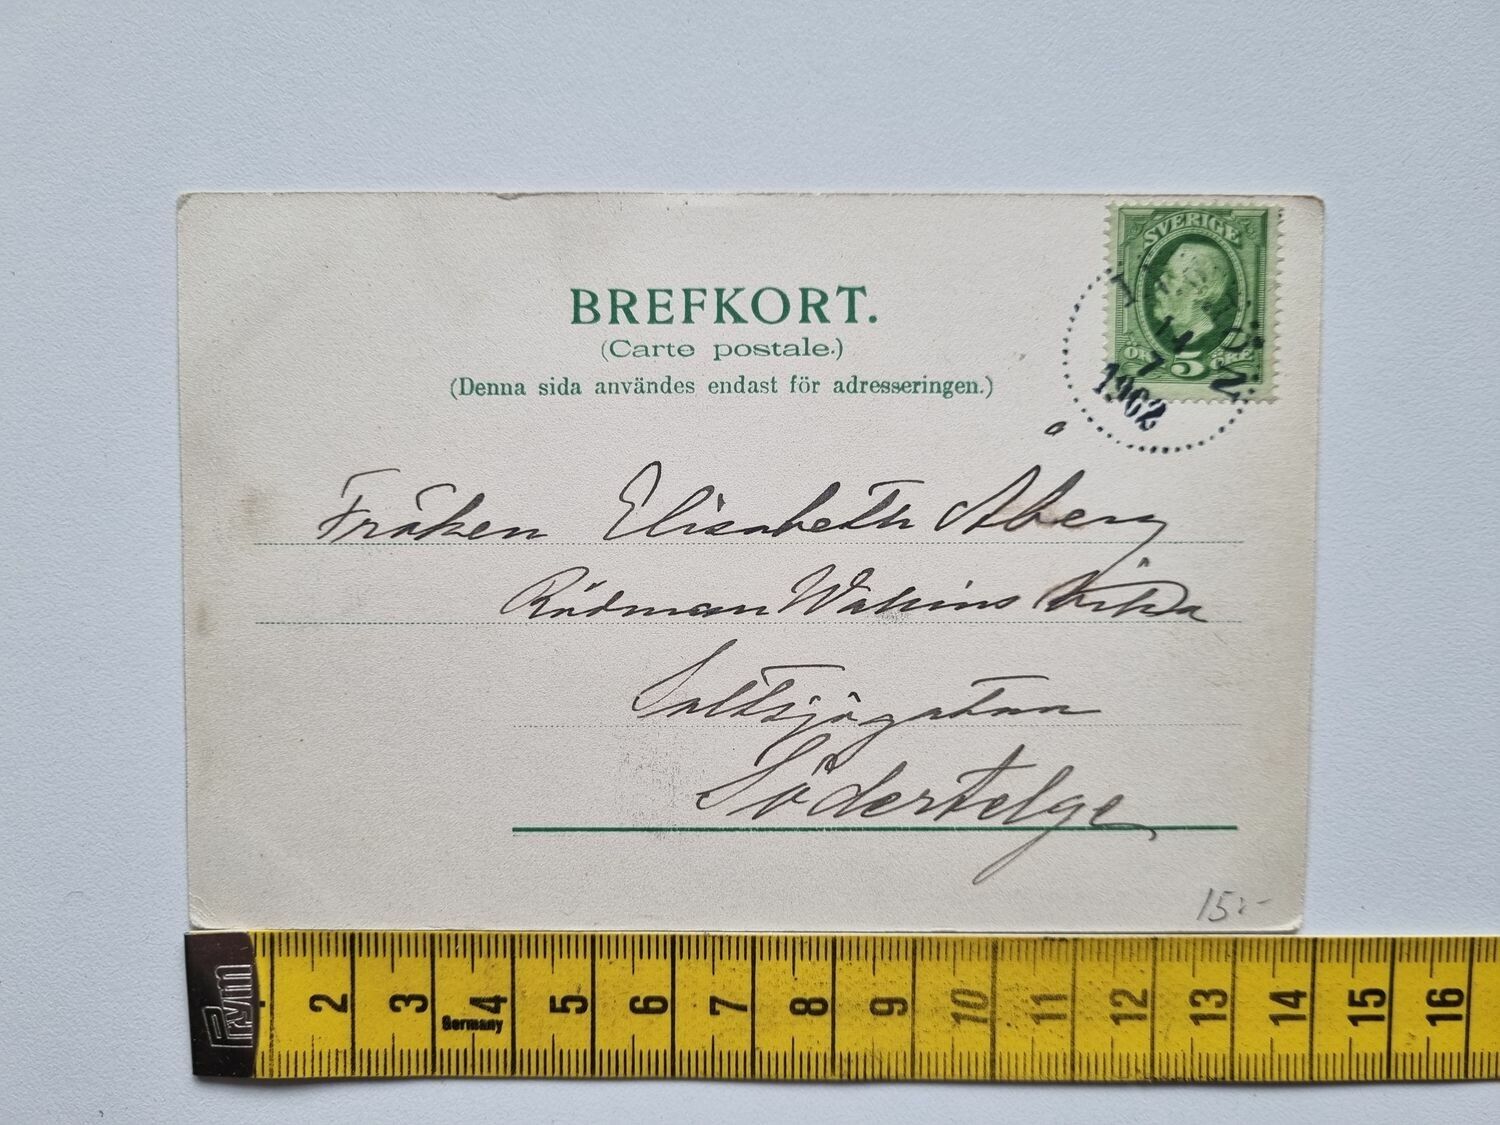 BREFKORT.
(Carte postale.)
(Denna sida användes endast för adresseringen.)
SVERIGE
ÖRE 5 ÖRE
14
7
1902
Fröken Elisabeth Åberg
Rådman
Saltsjögatan
Södertelge
15:-
Prym
2 3 4 5 6 7 8 9 10 11 12 13 14 15 16
Germany